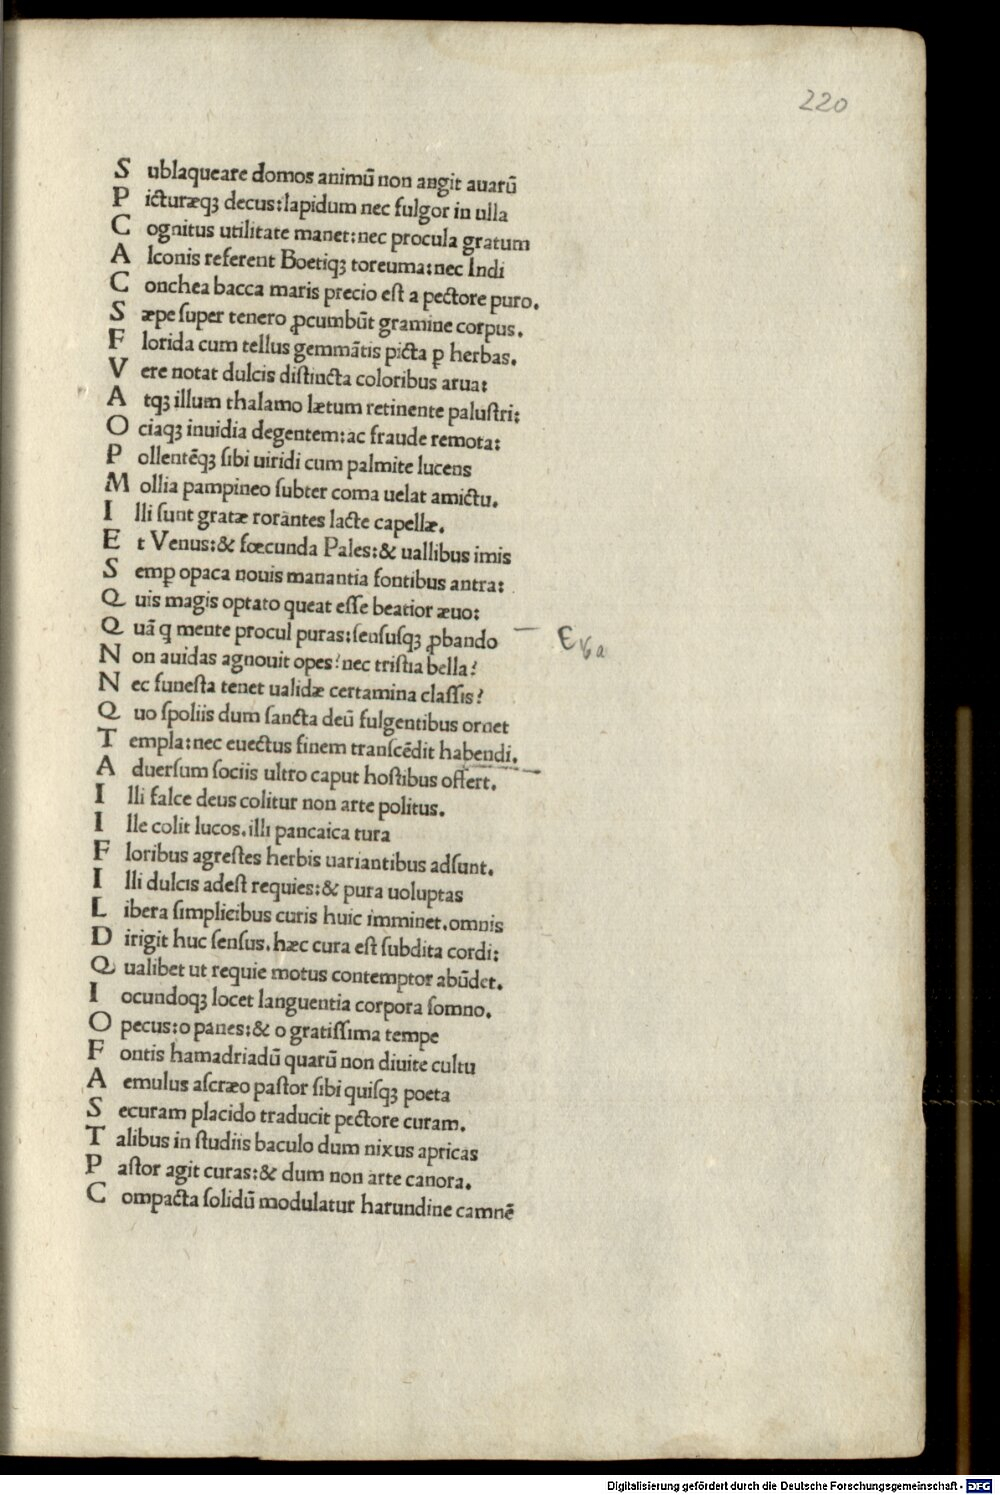 220
S ublaqueare domos animū non angit auarū
P icturæqꝫ decus:lapidum nec fulgor in ulla
C ognitus utilitate manet:nec procula gratum
A lconis referent Boetiqꝫ toreuma:nec Indi
C onchea bacca maris precio eſt a pectore puro.
S æpe ſuper tenero ꝓcumbūt gramine corpus.
F lorida cum tellus gemmātis picta ꝑ herbas.
V ere notat dulcis diſtincta coloribus arua:
A tqꝫ illum thalamo lætum retinente paluſtri:
O ciaqꝫ inuidia degentem:ac fraude remota:
P ollentēqꝫ ſibi uiridi cum palmite lucens
M ollia pampineo ſubter coma uelat amictu.
I lli ſunt gratæ rorantes lacte capellæ.
E t Venus:& fœcunda Pales:& uallibus imis
S emꝑ opaca nouis manantia fontibus antra:
Q uis magis optato queat eſſe beatior æuo:
Q uā q mente procul puras:ſenſusqꝫ ꝓbando
N on auidas agnouit opes?nec triſtia bella?
N ec funeſta tenet ualidæ certamina claſſis?
Q uo ſpoliis dum ſancta deū fulgentibus ornet
T empla:nec euectus finem tranſcēdit habendi.
A duerſum ſociis ultro caput hoſtibus offert.
I lli falce deus colitur non arte politus.
I lle colit lucos.illi pancaica tura
F loribus agreſtes herbis uariantibus adſunt.
I lli dulcis adeſt requies:& pura uoluptas
L ibera ſimplicibus curis huic imminet.omnis
D irigit huc ſenſus.hæc cura eſt ſubdita cordi:
Q ualibet ut requie motus contemptor abūdet.
I ocundoqꝫ locet languentia corpora ſomno.
O pecus:o panes:& o gratiſſima tempe
F ontis hamadriadū quarū non diuite cultu
A emulus aſcræo paſtor ſibi quiſqꝫ poeta
S ecuram placido traducit pectore curam.
T alibus in ſtudiis baculo dum nixus apricas
P aſtor agit curas:& dum non arte canora.
C ompacta ſolidū modulatur harundine camnē
Digitalisierung gefördert durch die Deutsche Forschungsgemeinschaft - DFG